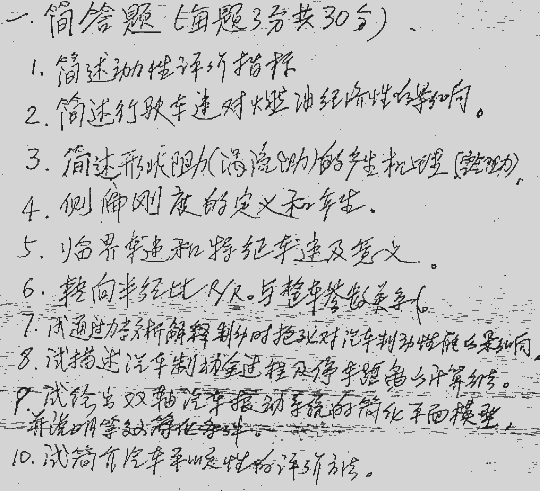 一. 简答题 (每题3分共30分).
1. 简述动力性评价指标
2. 简述行驶车速对燃油经济性的影响。
3. 简述形状阻力(涡流阻力)的产生机理 (空气阻力).
4. 侧偏刚度的定义和
5. 临界车速和特征车速及意义。
6. 转向半径比R/R₀与整车参数关系。
7. 试通过力学分析解释制动时抱死对汽车制动性能的影响。
8. 试描述汽车制动全过程及停车距离的计算方法。
9. 试绘出双轴汽车振动系统的简化平面模型,
并说明等效简化条件。
10. 试简介汽车平顺性的评价方法。